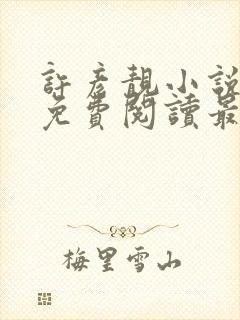 許彥靚小說
免費閱讀最
梅里雪山